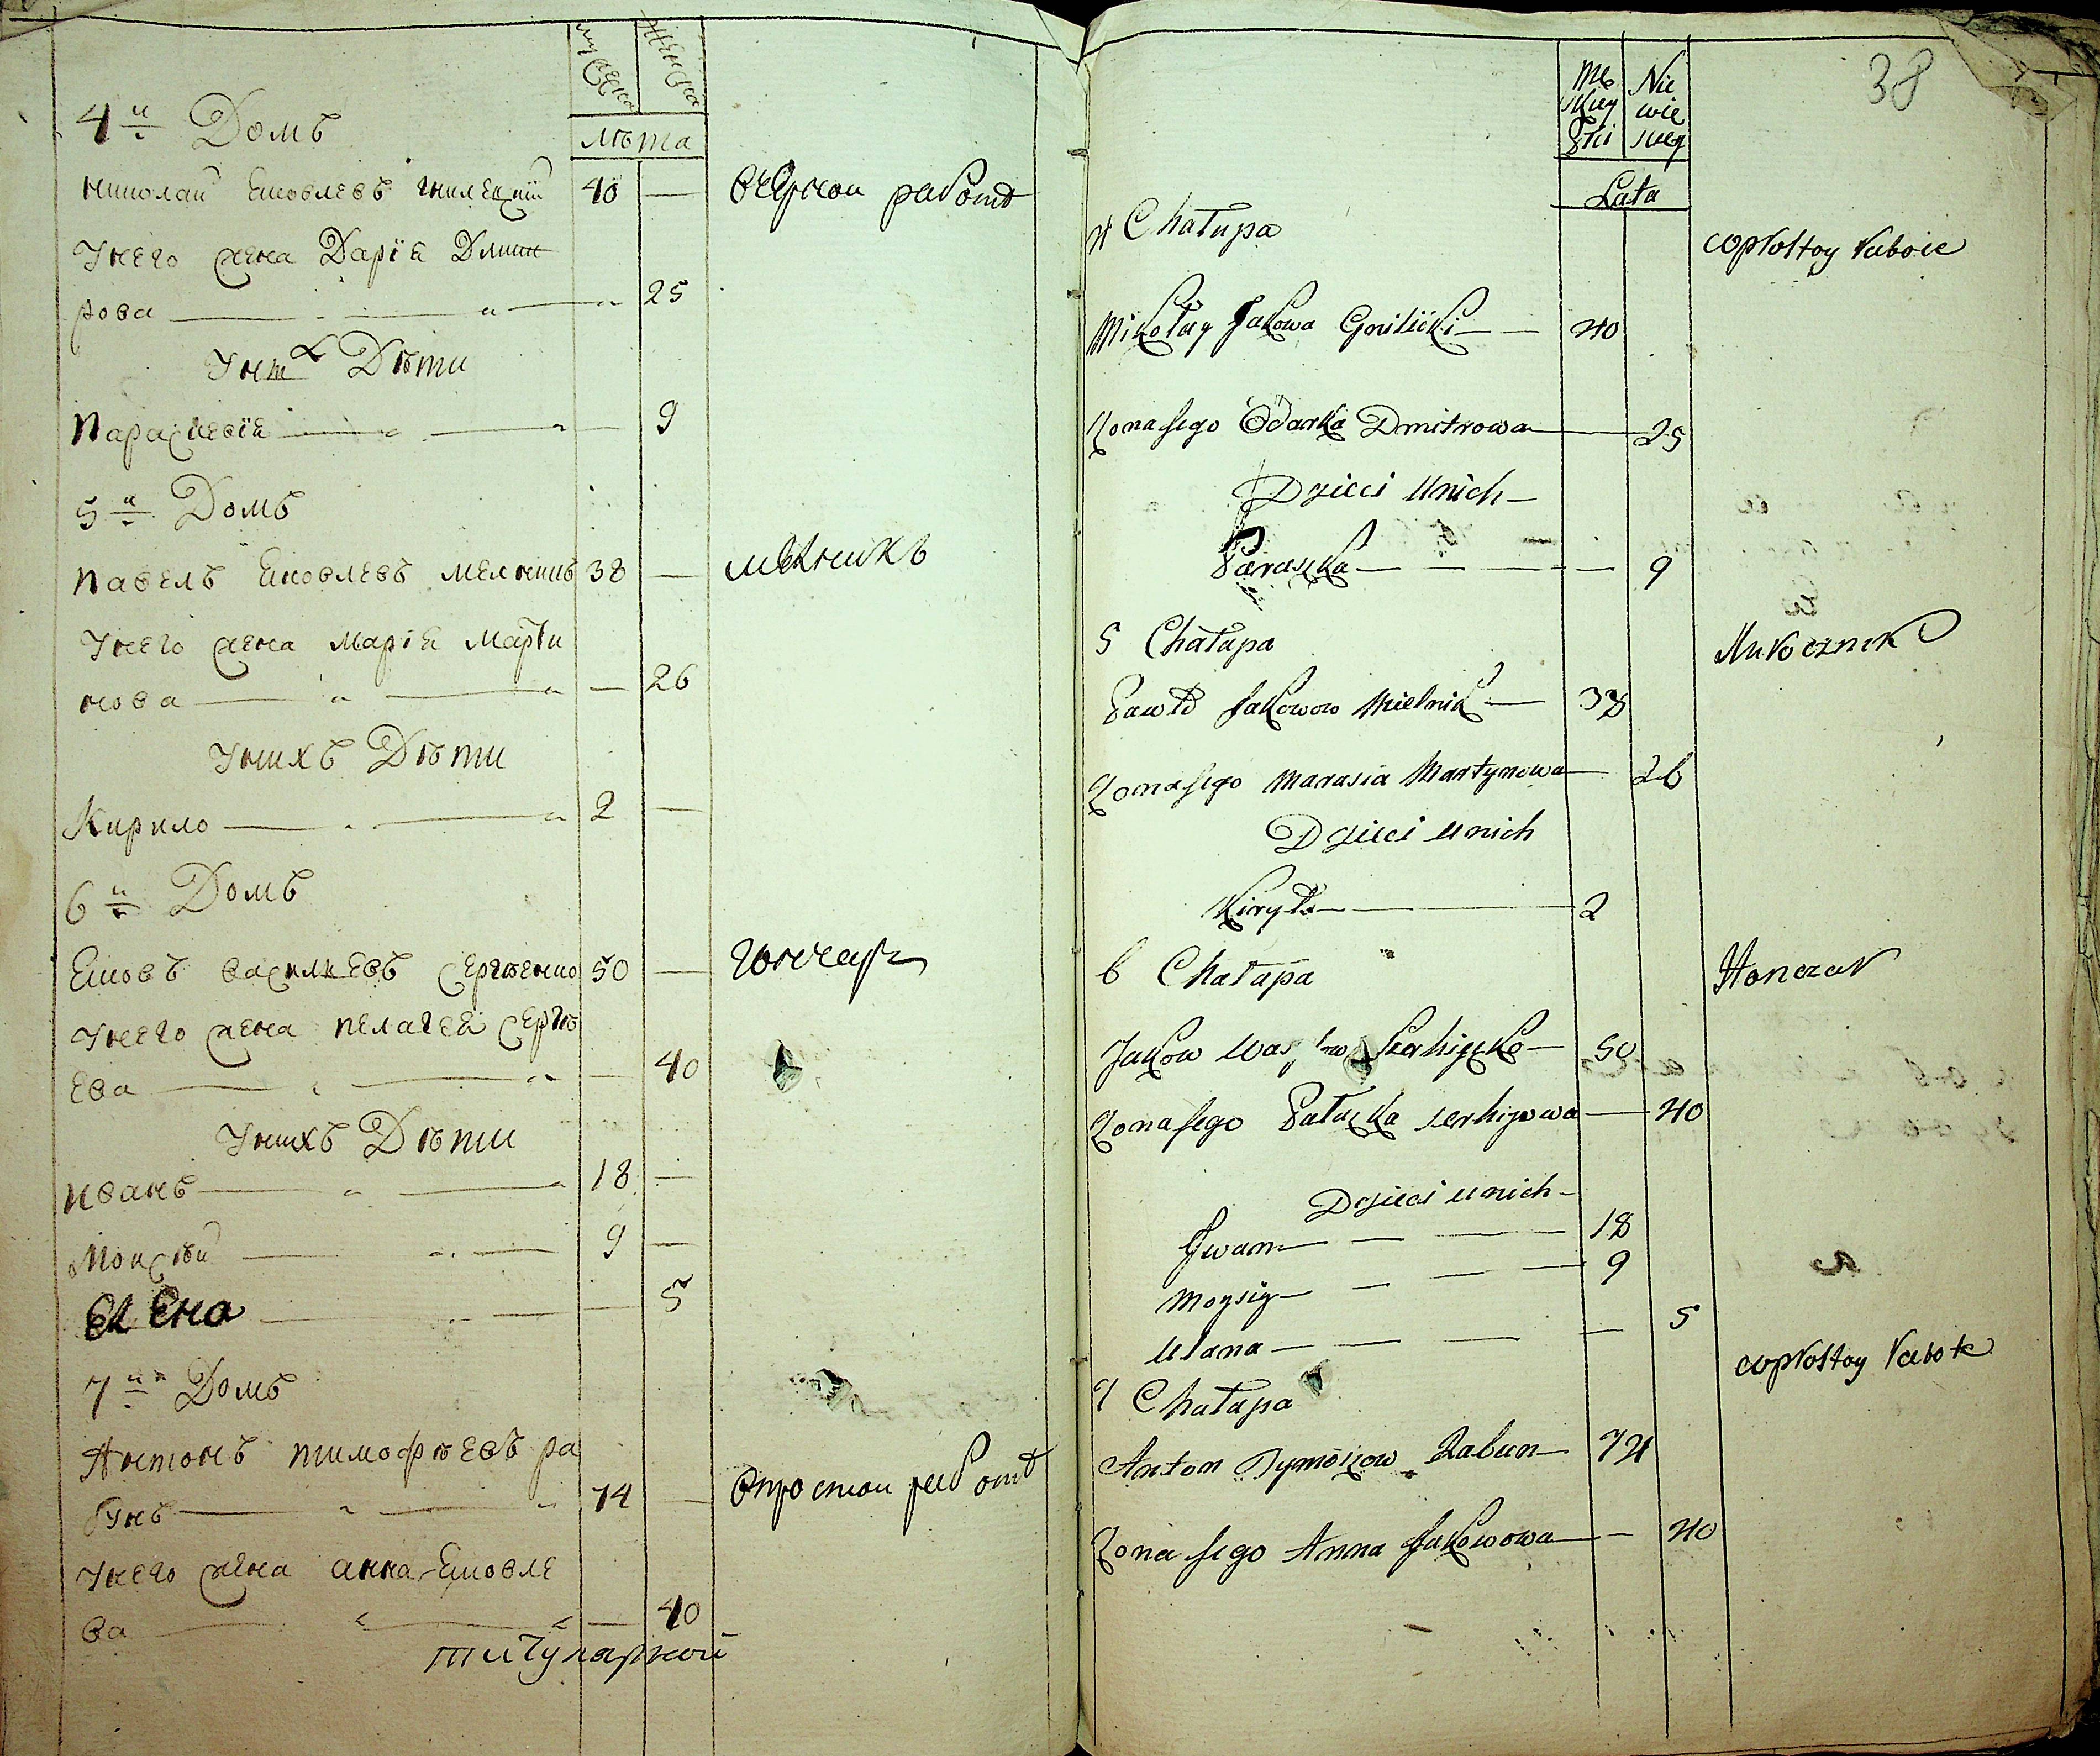 мужеска
женска
лѣта
4й Домъ
николай Яковлевъ гнилецкий 40 — вчерной работѣ
Унего жена Дарїя Дмит
рова — 25
Унихъ Дѣти
Параскевїя — 9
5й Домъ
Павелъ Яковлевъ мелникъ 38 —
Унего жена Марїя Марти
нова — 26
Унихъ Дѣти
Кирило — 2 —
6й Домъ
Яковъ василиевъ Сергѣенко 50 — гончаръ
Унего жена пелагея Сергѣ
ева — 40
Унихъ Дѣти
иванъ — 18 —
Моисѣй — 9 —
Елена — 5
7й Домъ
Антонъ тимофѣевъ ра
бунъ — 74 — впростой работѣ
Унего жена анна Яковле
ва — 40
титулярной
38
Mę Nie
skiey wie
Płci skiey
Lata
4 Chałupa wprostoy raboie
Mikołay Jakowa Gnilicki — 40
Zona Jego Odarka Dmitrowa — 25
Dzieci unich —
Paraszka — 9
5 Chałupa
Pawło Jakowow Mielnik — 38
Zona Jego Marasia Martynowa — 26
Dzieci unich
Kiryło — 2
6 Chałupa Honczar
Jakow Serhijenko — 50
Zona Jego Pałaszka serhijowa — 40
Dzieci unich —
Jwan — 18
Moysiy — 9
Ulana — 5
7 Chałupa wprostoy rabote
Anton Tymoszow Rabun — 74
Zona Jego Anna Jakowowa — 40